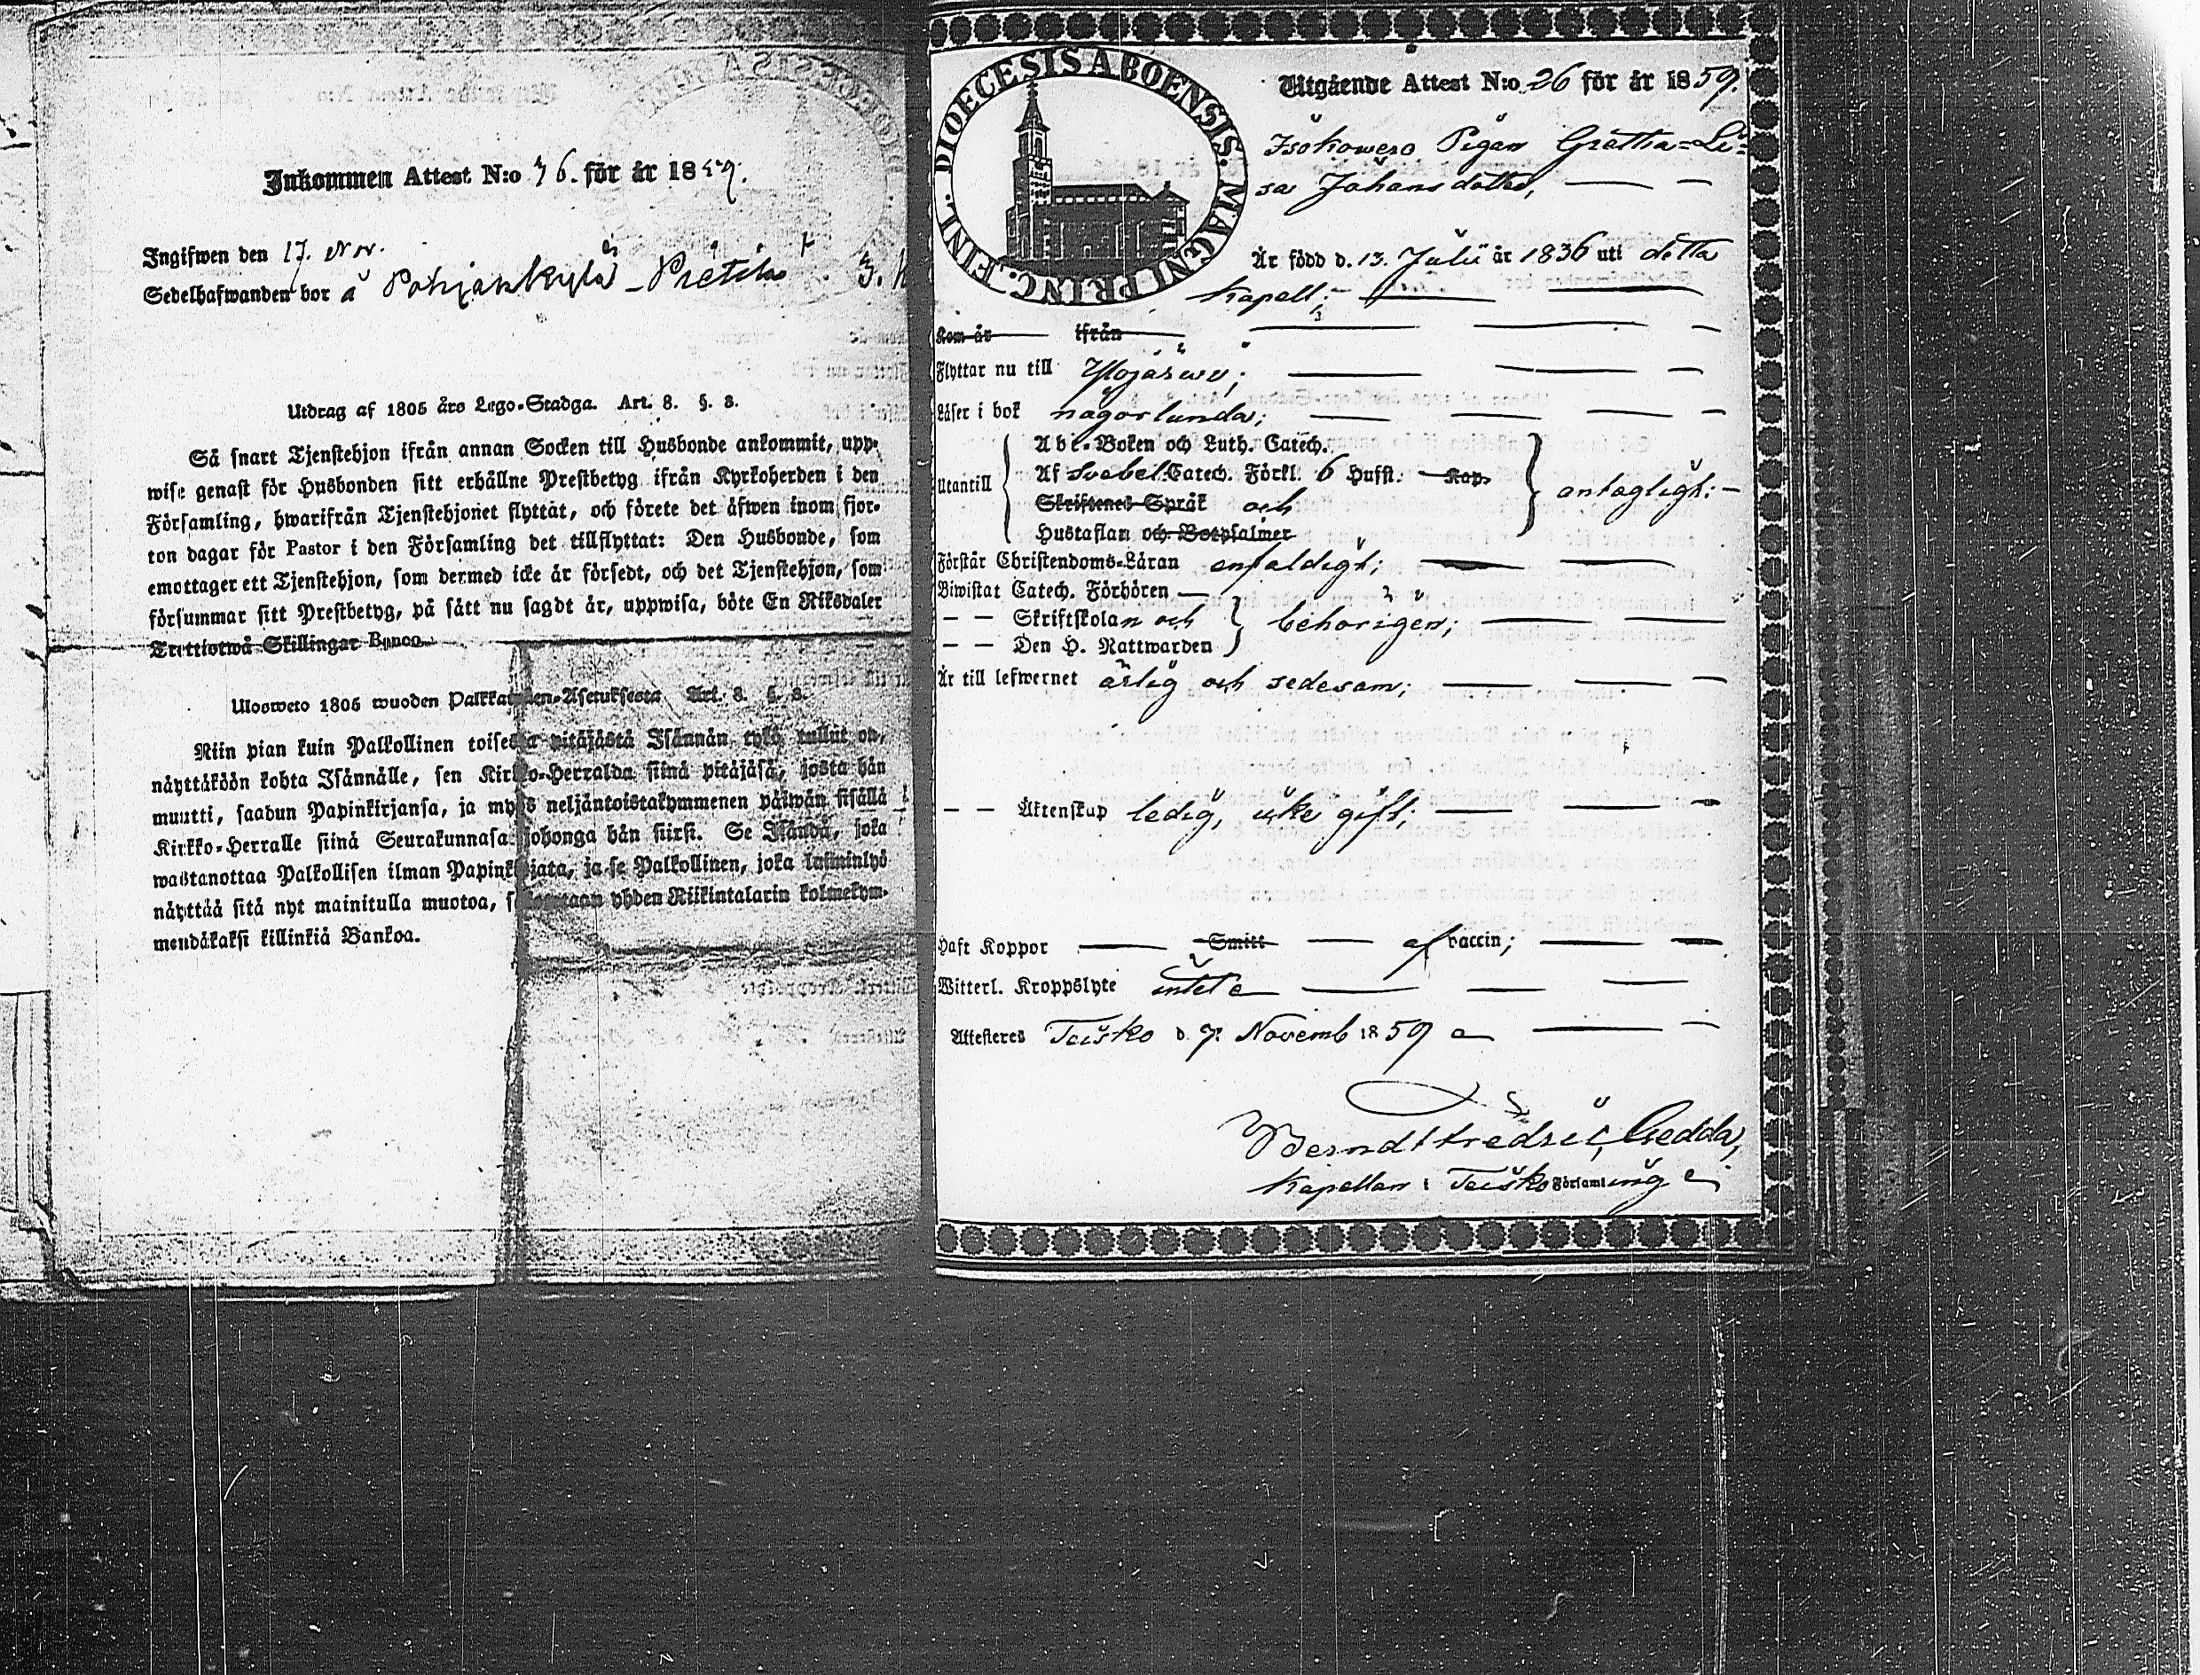 Inkommen Attest N:o 76. för år 1859.
Ingifwen den 17. Nov.
Sedelhafwanden bor å Pohjankylä - Prittilä
Utdrag af 1805 års Lego-Stadga. Art. 8. §. 8.
Så snart Tjenstehjon ifrån annan Socken till Husbonde ankommit, upp-
wise genast för Husbonden sitt erhållne Prestbetyg ifrån Kyrkoherden i den
Församling, hwarifrån Tjenstehjonet flyttat, och förete det äfwen inom fjor-
ton dagar för Pastor i den Församling det tillflyttat: Den Husbonde, som
emottager ett Tjenstehjon, som dermed icke är försedt, och det Tjenstehjon, som
försummar sitt Prestbetyg, på sätt nu sagdt är, uppwisa, böte En Riksdaler
Trettiotwå Skillingar Banco.
Ulosweto 1805 wuoden Palkkawäen-Asetuksesta Art. 8. §. 8.
Niin pian kuin Palkollinen toisesta pitäjästä Isännän tykö tullut on,
näyttäköön kohta Isännälle, sen Kirkko-Herralda siinä pitäjäsä, josta hän
muutti, saadun Papinkirjansa, ja myös neljäntoistakymmenen päiwän sisällä
Kirkko-Herralle siinä Seurakunnasa johonga hän siirsi. Se Isändä, joka
wastanottaa Palkollisen ilman Papinkirjata, ja se Palkollinen, joka laiminlyö
näyttää sitä nyt mainitulla muotoa, sakoitetaan yhden Riikintalarin kolmekym-
mendäkaksi killinkiä Bankoa.
DIOECESIS ABOENSIS. MAGNI PRINC. FINL.
Utgående Attest N:o 26 för år 1859.
Isokowero Pigan Gretha=Li=
sa Johansdotter,
Är född d. 13. Julii år 1836 uti detta
Kapell;
Kom år ifrån
Flyttar nu till Ylöjärwi;
Läser i bok någorlunda;
Utantill
Abc-Boken och Luth. Catech.
Af Svebel. Catech. Förkl. 6 Hufst. Kap.
Skriftenes Språk och
Hustaflan och Botpsalmer
antagligt:
Förstår Christendoms-Läran enfaldigt;
Biwistat Catech. Förhören
— — Skriftskolan och
— — Den H. Nattwarden
behörigen;
Är till lefwernet ärlig och sedesam;
— — Äktenskap ledig, icke gift;
Haft Koppor Smitt af vaccin;
Witterl. Kroppslyte intet
Attesteres Teisko d. 7. Novemb 1859
Berndt Fredric Gedda,
Kapellan i Teisko Församling